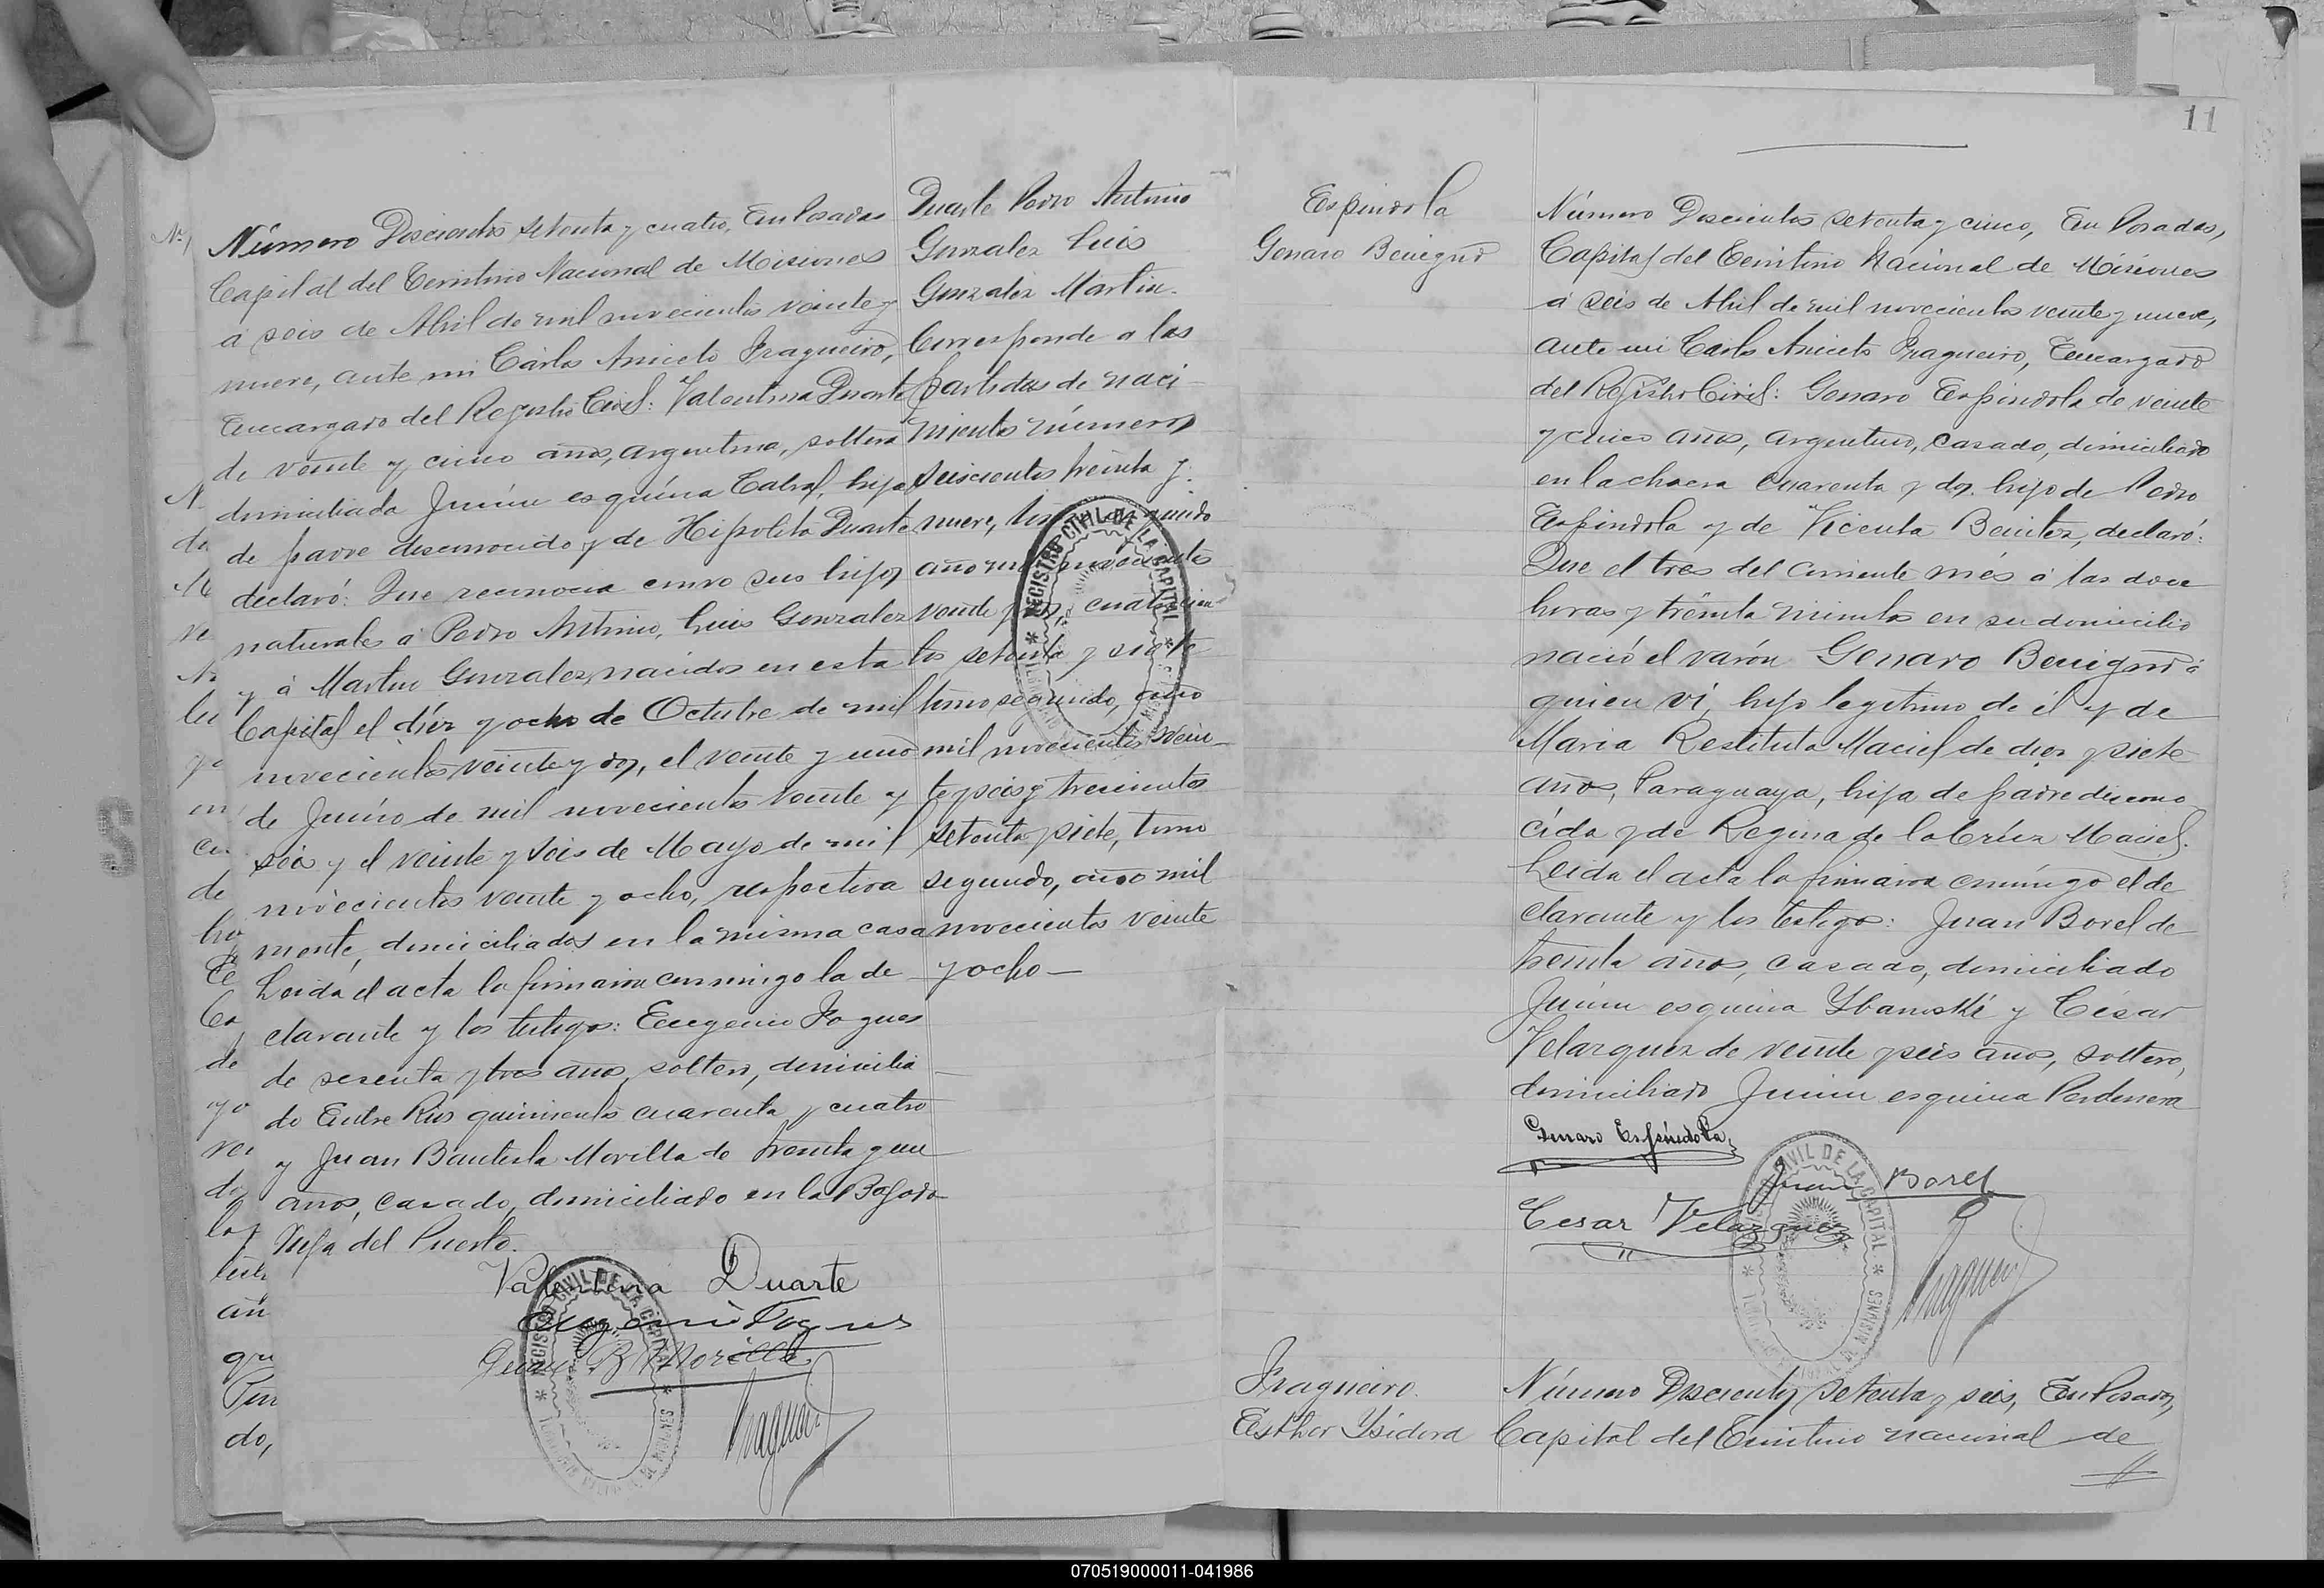 Número Doscientos setenta y cuatro, En Posadas
Capital del Territorio Nacional de Misiones
á seis de Abril de mil novecientos veinte y
nueve, ante mi Cárlos Aniceto Fragueiro,
Encargado del Registro Civil: Valentina Duarte
de veinte y cinco años, argentina, soltera
domiciliada Junín esquina Cabral, hija
de padre desconocido y de Hipolita Duarte
declaró: Que reconocia como sus hijos
naturales á Pedro Antonio, Luis Gonzalez
y á Martin Gonzalez, nacidos en esta
Capital el diez y ocho de Octubre de mil
novecientos veinte y dos, el veinte y uno
de Junio de mil novecientos veinte y
seis y el veinte y seis de Mayo de mil
novecientos veinte y ocho, respectiva
mente, domiciliados en la misma casa
Leida el acta la firmaron conmigo la de
clarante y los testigos: Eugenio Fogues
de sesenta y tres años, soltero, domicilia
do Entre Rios quinientos cuarenta y cuatro
y Juan Bautista Morilla de treinta y un
años, casado, domiciliado en la Bajada
Vieja del Puerto.
Valentina Duarte
Eugenio Fogues
Juan B Morilla
Fragueiro
Duarte Pedro Antonio
Gonzalez Luis
Gonzalez Martin.
Corresponde a las
partidas de naci
mientos números
seiscientos treinta y
nueve, tomo segundo
año mil novecientos
veinte y dos, cuatrocien
tos setenta y siete
tomo segundo, año
mil novecientos vein
te y seis y trescientos
setenta y siete, tomo
segundo, año mil
novecientos veinte
y ocho
REGISTRO CIVIL DE LA CAPITAL
11
Espindola
Genaro Benigno
Número Doscientos setenta y cinco, En Posadas,
Capital del Territorio Nacional de Misiones
á seis de Abril de mil novecientos veinte y nueve,
ante mi Carlos Aniceto Fragueiro, Encargado
del Registro Civil: Genaro Espindola de veinte
y cinco años, argentino, casado, domiciliado
en la chacra cuarenta y dos, hijo de Pedro
Espindola y de Vicenta Benitez, declaró:
Que el tres del corriente més á las doce
horas y tréinta minutos en su domicilio
nació el varón Genaro Benigno á
quien ví, hijo legitimo de él y de
Maria Restituta Maciel de diez y siete
años, Paraguaya, hija de padre descono
cido y de Regina de la Crúz Maciel.
Leida el acta la firmaron conmigo el de
clarante y los testigos: Juan Borel de
treinta años, casado, domiciliado
Junin esquina Ybanoski y César
Velazquez de veinte y seis años, soltero,
domiciliado Junin esquina Pedernera
Genaro Espíndola
Juan Borel
Cesar Velazquez
Fragueiro
REGISTRO CIVIL DE LA CAPITAL
Fragueiro.
Esther Ysidora
Número Doscientos setenta y seis, En Posadas,
Capital del Territorio nacional de
070519000011-041986